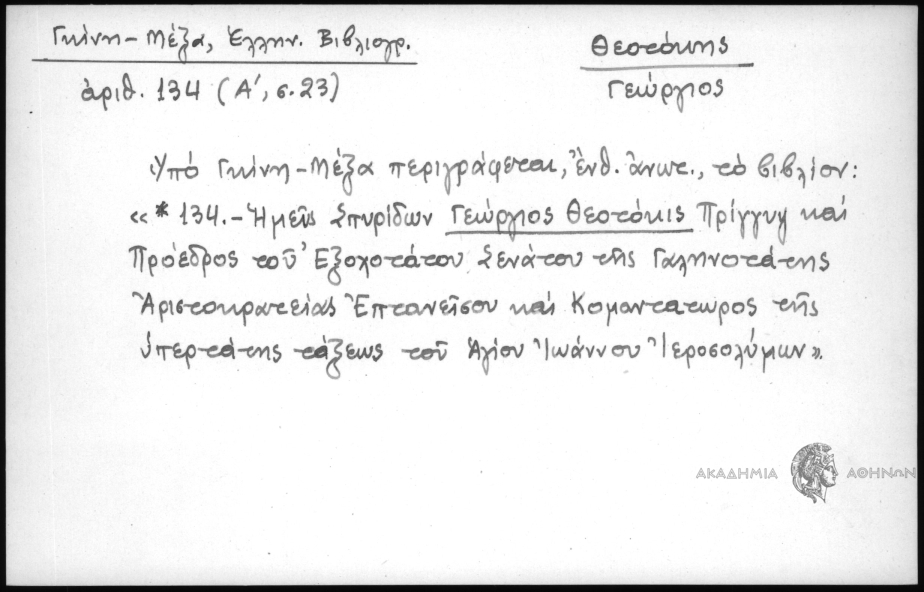 Γκίνη-Μέξα, Ἑλλην. Βιβλιογρ.
ἀριθ. 134 (Α', σ.23)
Θεοτόκης
Γεώργιος
Ὑπό Γκίνη-Μέξα περιγράφεται, ἔνθ. ἄνωτ., τὸ βιβλίον:
«* 134.- Ἡμεῖς Σπυρίδων Γεώργιος Θεοτόκις Πρίγγιψ καὶ
Πρόεδρος τοῦ Ἐξοχοτάτου Σενάτου τῆς Γαληνοτάτης
Ἀριστοκρατείας Ἑπτανείσου καὶ Κομαντατωρος τῆς
ὑπερτάτης τάξεως τοῦ Ἁγίου Ἰωάννου Ἱεροσολύμων».
ΑΚΑΔΗΜΙΑ ΑΘΗΝΩΝ